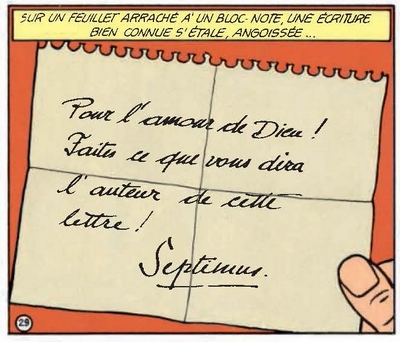 SUR UN FEUILLET ARRACHÉ À UN BLOC-NOTE, UNE ÉCRITURE
BIEN CONNUE S'ÉTALE, ANGOISSÉE...
Pour l'amour de Dieu !
Faites ce que vous dira
l'auteur de cette
lettre !
Septimus.
29